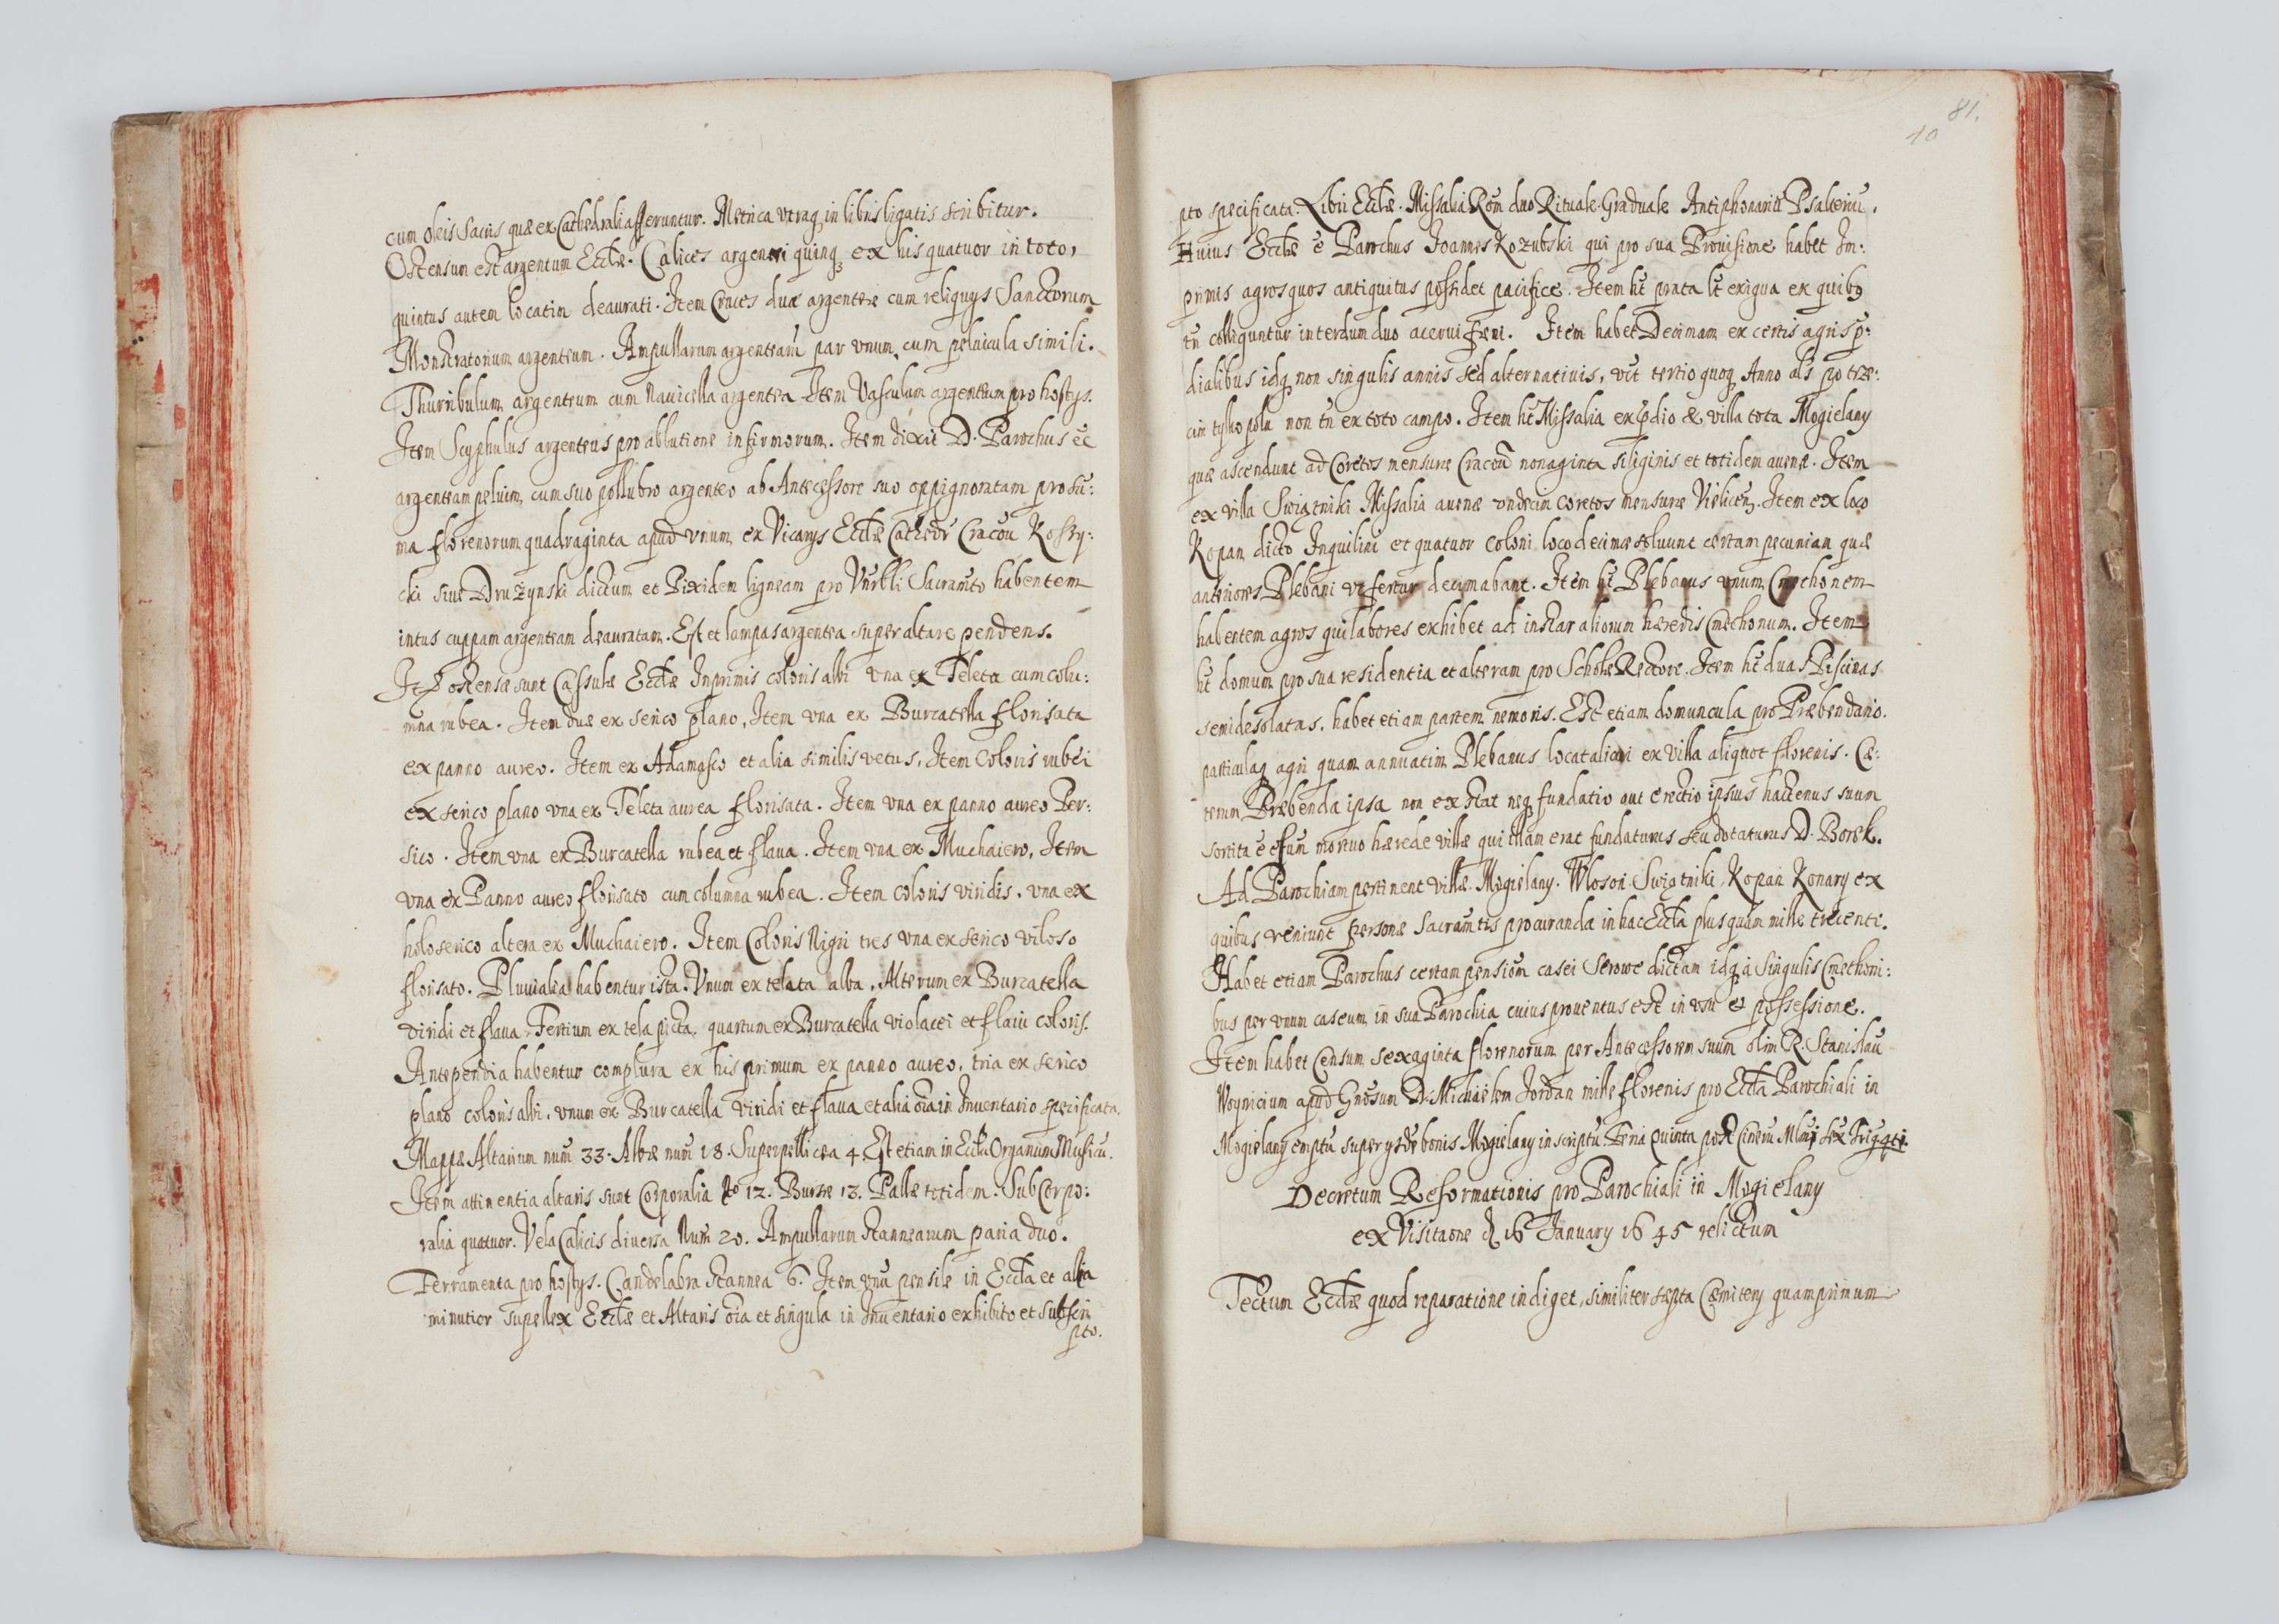 cum oleis Sacris quæ ex Cathedrali afferuntur. Metrica vtraq in libris ligatis scribitur.
Ostensum est argentum Eccłæ. Calices argentei quinq ex his quatuor in toto,
quintus autem locatim deaurati. Item Cruces duæ argenteæ cum reliquys Sanctorum
Monstratorium argenteum. Ampullarum argentearū par vnum cum peluicula simili.
Thuribulum argenteum cum Nauicella argentea Item Vasculum argenteum pro hostys.
Item Scyphulus argenteus pro ablutione infirmorum. Item dixit D. Parochus ēē
argenteam peluim cum suo pollubro argenteo ab Antecessore suo oppignoratam pro su:
ma florenorum quadraginta apud vnum ex Vicarys Eccłæ Cathedr Cracou
siue Drużynski dictum et Pixidem ligneam pro Vnrbli Sacramto habentem
intus cuppam argenteam deauratam. Est et lampas argentea super altare pendens.
ostensæ sunt Casulæ Eccłæ Inprimis coloris albi vna ex Teleta cum colu:
mna rubea. Item duæ ex serico plano, Item vna ex Burcatella florisata
ex panno aureo. Item ex Adamasco et alia similis vetus, Item Coloris rubei
ex serico plano vna ex Teleta aurea florisata. Item vna ex panno aureo Per:
sico. Item vna ex Burcatella rubea et flaua. Item vna ex Muchaiero, Item
vna ex Panno aureo florisato cum columna rubea. Item coloris viridis, vna ex
holoserico altera ex Muchaiero. Item Coloris Nigri tres vna ex serico viloso
florisato. Pluuialia habentur ista. Vnum ex telata alba, Alterum ex Burcatella
viridi et flaua, Tertium ex tela picta, quartum ex Burcatella violacei et flaui coloris.
Antependia habentur complura ex his primum ex panno aureo, tria ex serico
plano coloris albi, vnum ex Burcatella viridi et flaua et alia oīa in Inuentario specificata.
Mappæ Altarium num 33. Albæ num 18. Superpellicea 4. Est etiam in Eccła Organum Musicū.
Item attinentia altaris sunt Corporalia No 12. Bursæ 13. Pallæ totidem. SubCorpo:
ralia quatuor. Vela Calicis diuersa Num 20. Ampullarum stannearum paria duo.
Ferramenta pro hostys. Candelabra stannea 6. Item vnū pensile in Eccła et alia
minutior supellex Eccłæ et Altaris oīa et singula in Inuentario exhibito et subscri
pto.
81.
40
pto specificata. Libri Eccłæ. Missalia Rom duo Rituale Graduale Antiphonariū Psalteriū.
Huius Eccłæ ē Parochus Joannes Kozubski qui pro sua Prouisione habet Im:
primis agros quos antiquitus possidet pacifice. Item ht prata lt exigua ex quibq
tn colliguntur interdum duo acerui fæni. Item habet Decimam ex certis agris p:
dialibus idq non singulis annis sed alternatiuis, vct tertio quoq Anno als po trze:
cim tylko polu non tn ex toto campo. Item ht Missalia ex pdio & villa tota Mogielany
quæ ascendunt ad Coretos mensuræ Cracou nonaginta siliginis et totidem auenæ. Item
ex villa Swiątniki Missalia auenæ vndecim coretos mensuræ Vielicen. Item ex loco
Kopan dicto Inquilini et quatuor coloni loco decimæ soluunt certam pecuniam quæ
anteriores Plebani vt fertur decimabant. Item ht Plebanus vnum Cmethonem
habentem agros qui labores exhibet ad instar aliorum hæredis Cmethonum. Item
ht domum pro sua residentia et alteram pro Scholæ Rectore. Item ht duas Piscinas
semidesolatas, habet etiam partem nemoris. Est etiam domuncula pro Præbendario.
particulaq agri quam annuatim Plebanus locat alicui ex villa aliquot florenis. Cæ:
terum Præbenda ipsa non exstat neq fundatio aut erectio ipsius hactenus suum
sortita ē efum mortuo hærede villæ qui illam erat fundaturus seu dotaturus D. Borek.
Ad Parochiam pertinent villæ. Mogielany. Włosoń Swiątniki, Kopań Konary ex
quibus veniunt personæ Sacramtis procuranda in hac Eccła plus quam mille trecenti.
Habet etiam Parochus certam pensiom casei Serowe dictam idq à singulis Cmethoni:
bus per vnum caseum in sua Parochia cuius prouentus est in vsu et possessione.
Item habet Censum sexaginta florenorum per Antecessorem suum olim R. Stanislaū
Woynicium apud Gnosum D. Michaelem Jordan mille florenis pro Eccła Parochiali in
Mogielany emptū super ysde bonis Mogielany inscriptū Feria Quinta post Cinerū
Decretum Reformationis pro Parochiali in Mogielany
ex Visitaone d 16 January 1645 relictum
Tectum Eccłæ quod reparatione indiget, similiter septa Cæmitery quamprimum